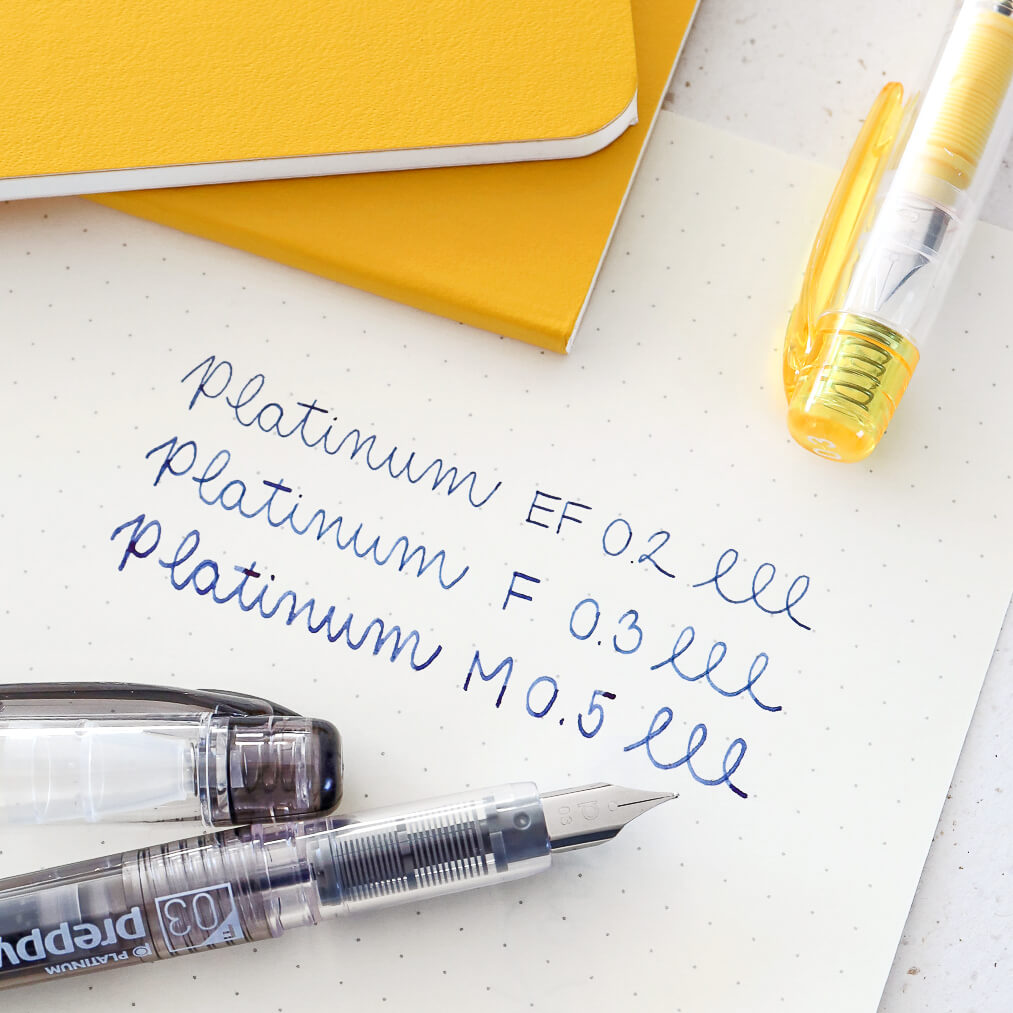 platinum EF 0.2 lll
platinum F 0.3 lll
platinum M 0.5 lll
03
03 P
F 03
preppy
PLATINUM